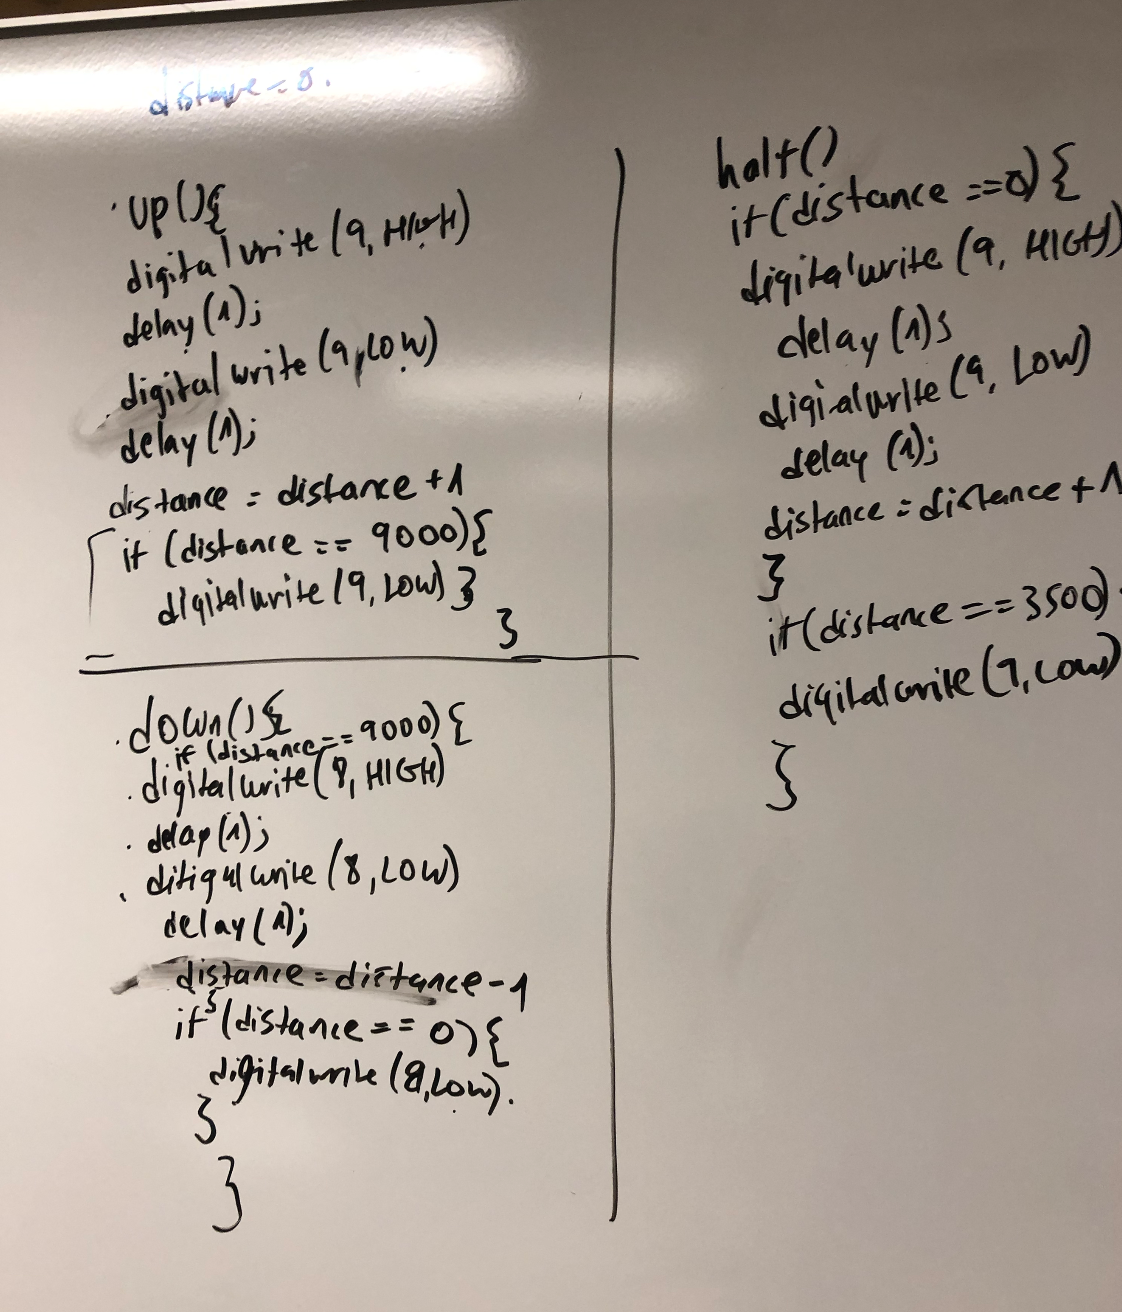 distance = 0.
up(){
digitalwrite (9, HIGH)
delay (1);
digital write (9, LOW)
delay (1);
distance = distance + 1
if (distance == 9000){
digitalwrite (9, LOW) }
}
down(){
if (distance == 9000){
digitalwrite (8, HIGH)
delay (1);
ditigal write (8, LOW)
delay (1);
distance = distance - 1
if (distance == 0){
digitalwrite (8, LOW).
}
}
half()
if (distance == 0) {
digitalwrite (9, HIGH)
delay (1);
digialwrite (9, LOW)
delay (1);
distance = distance + 1
}
if (distance == 3500)
digitalwrite (9, LOW)
}